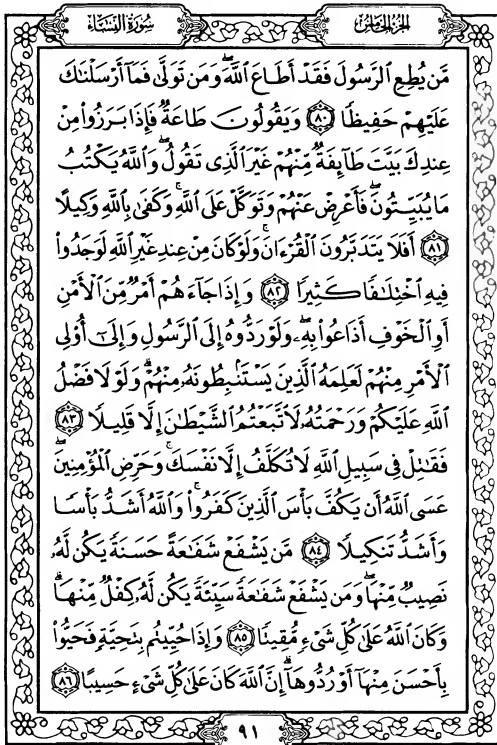 سُورَةُ النِّسَاءِ
الجُزْءُ الخَامِسُ
مَّن يُطِعِ ٱلرَّسُولَ فَقَدْ أَطَاعَ ٱللَّهَۖ وَمَن تَوَلَّىٰ فَمَآ أَرْسَلْنَٰكَ
عَلَيْهِمْ حَفِيظًا ٨٠ وَيَقُولُونَ طَاعَةٌ فَإِذَا بَرَزُوا۟ مِنْ
عِندِكَ بَيَّتَ طَآئِفَةٌ مِّنْهُمْ غَيْرَ ٱلَّذِى تَقُولُۖ وَٱللَّهُ يَكْتُبُ
مَا يُبَيِّتُونَۖ فَأَعْرِضْ عَنْهُمْ وَتَوَكَّلْ عَلَى ٱللَّهِۚ وَكَفَىٰ بِٱللَّهِ وَكِيلًا
٨١ أَفَلَا يَتَدَبَّرُونَ ٱلْقُرْءَانَۚ وَلَوْ كَانَ مِنْ عِندِ غَيْرِ ٱللَّهِ لَوَجَدُوا۟
فِيهِ ٱخْتِلَٰفًا كَثِيرًا ٨٢ وَإِذَا جَآءَهُمْ أَمْرٌ مِّنَ ٱلْأَمْنِ
أَوِ ٱلْخَوْفِ أَذَاعُوا۟ بِهِۦۖ وَلَوْ رَدُّوهُ إِلَى ٱلرَّسُولِ وَإِلَىٰٓ أُو۟لِى
ٱلْأَمْرِ مِنْهُمْ لَعَلِمَهُ ٱلَّذِينَ يَسْتَنۢبِطُونَهُۥ مِنْهُمْۗ وَلَوْلَا فَضْلُ
ٱللَّهِ عَلَيْكُمْ وَرَحْمَتُهُۥ لَٱتَّبَعْتُمُ ٱلشَّيْطَٰنَ إِلَّا قَلِيلًا ٨٣
فَقَٰتِلْ فِى سَبِيلِ ٱللَّهِ لَا تُكَلَّفُ إِلَّا نَفْسَكَۚ وَحَرِّضِ ٱلْمُؤْمِنِينَۖ
عَسَى ٱللَّهُ أَن يَكُفَّ بَأْسَ ٱلَّذِينَ كَفَرُوا۟ۚ وَٱللَّهُ أَشَدُّ بَأْسًا
وَأَشَدُّ تَنكِيلًا ٨٤ مَّن يَشْفَعْ شَفَٰعَةً حَسَنَةً يَكُن لَّهُۥ
نَصِيبٌ مِّنْهَاۖ وَمَن يَشْفَعْ شَفَٰعَةً سَيِّئَةً يَكُن لَّهُۥ كِفْلٌ مِّنْهَاۗ
وَكَانَ ٱللَّهُ عَلَىٰ كُلِّ شَىْءٍ مُّقِيتًا ٨٥ وَإِذَا حُيِّيتُم بِتَحِيَّةٍ فَحَيُّوا۟
بِأَحْسَنَ مِنْهَآ أَوْ رُدُّوهَآۗ إِنَّ ٱللَّهَ كَانَ عَلَىٰ كُلِّ شَىْءٍ حَسِيبًا ٨٦
٩١